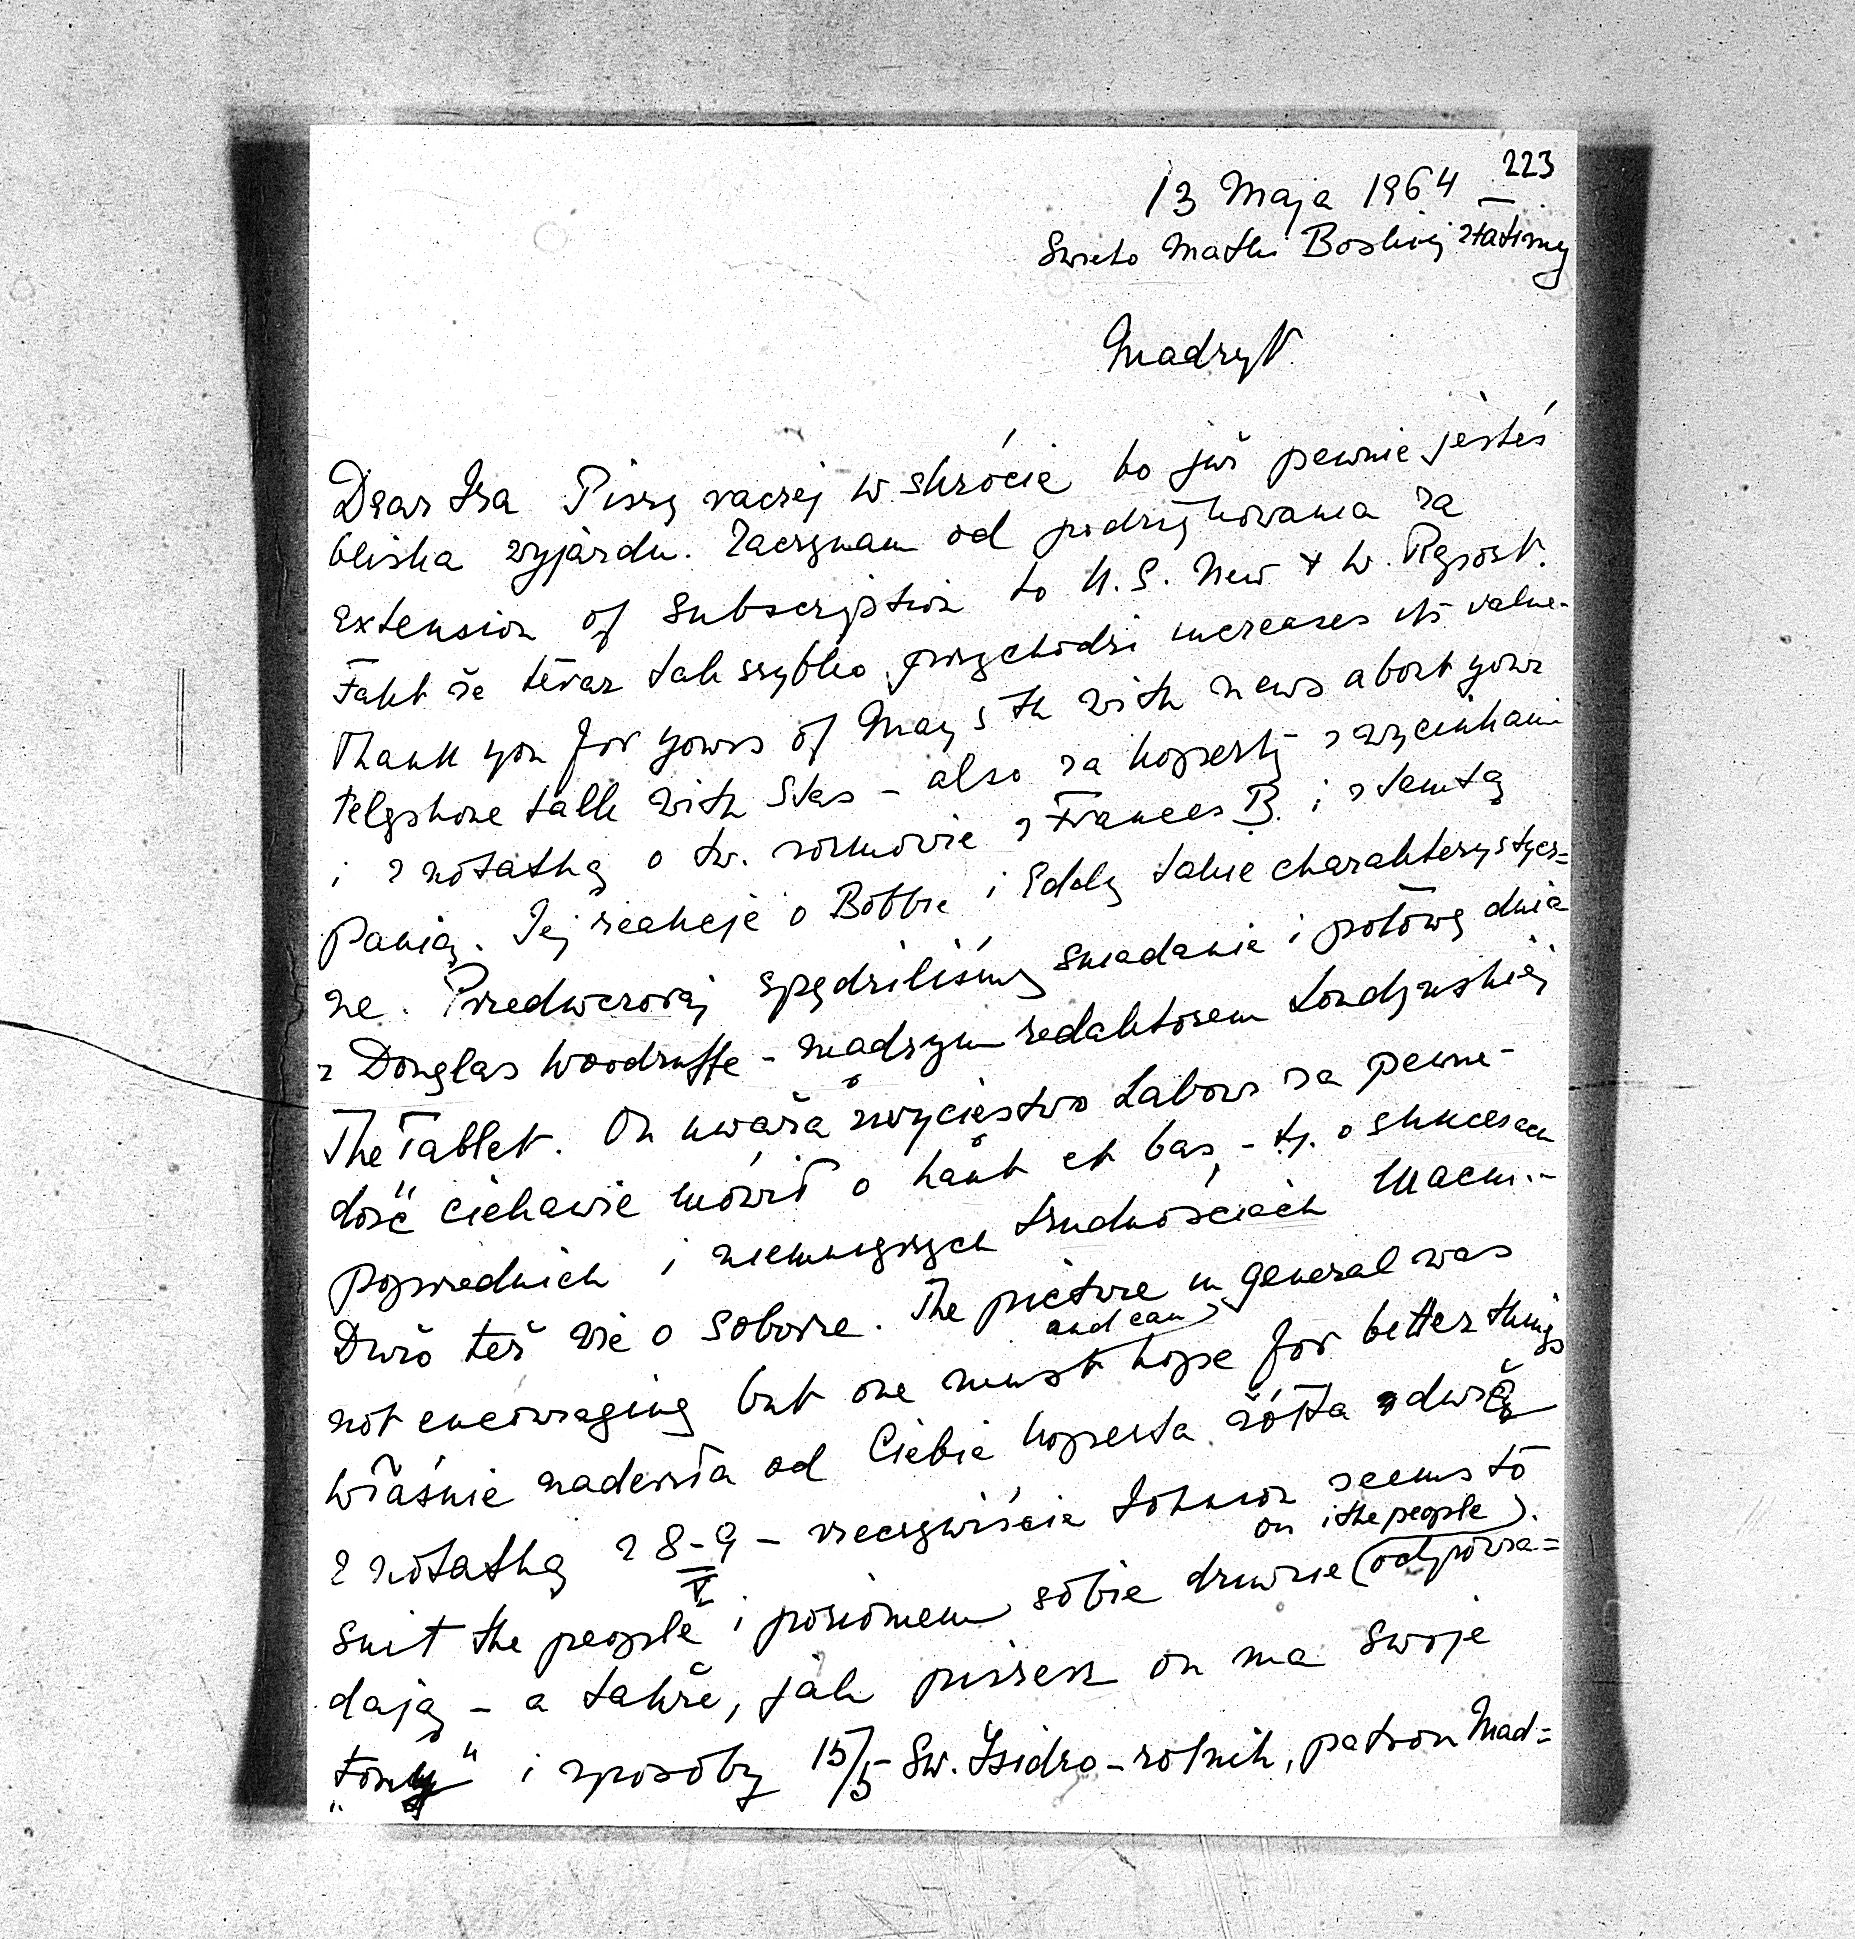 223
13 Maja 1964
Swieto Matki Boskiej z Fatimy
Madryt
Dear Isa Piszę raczej w skrócie bo już pewnie jesteś
bliska wyjazdu. Zaczynam od podziękowania za
extension of subscription to U.S. New & W. Report.
Fakt że teraz tak szybko przychodzi increases its value.
Thank you for yours of May 5th with news about your
telephone talk with Stas – also za kopertę z wycinkami
i z notatką o tw. rozmowie z Frances B. i z tamtą
Panią. Jej reakcje o Bobbie i Eddy takie charakterystycz=
ne. Przedwczoraj spędziliśmy sniadanie i połowę dnia
z Douglas Woodruffe – mądrym redaktorem Londyńskiej
The Tablet. On uważa zwycięstwo Labour za pewne –
dość ciekawie mówił o haut et bas, – tj. o sukcesach
poprzednich i niemniejszych trudnościach Macm. –
Dużo też wie o Soborze. The picture in general was
not encouraging but one must and can hope for better things
Właśnie nadeszła od Ciebie koperta żółta z dużą
z notatką z 8–9 V – rzeczywiście Johnson seems to
suit the people i poziomem sobie dziwnie (odpowia=
on i the people).
dają – a także, jak piszesz on ma swoje
"tony" i sposoby 15/5 – Sw. Isidro – rolnik, patron Mad=